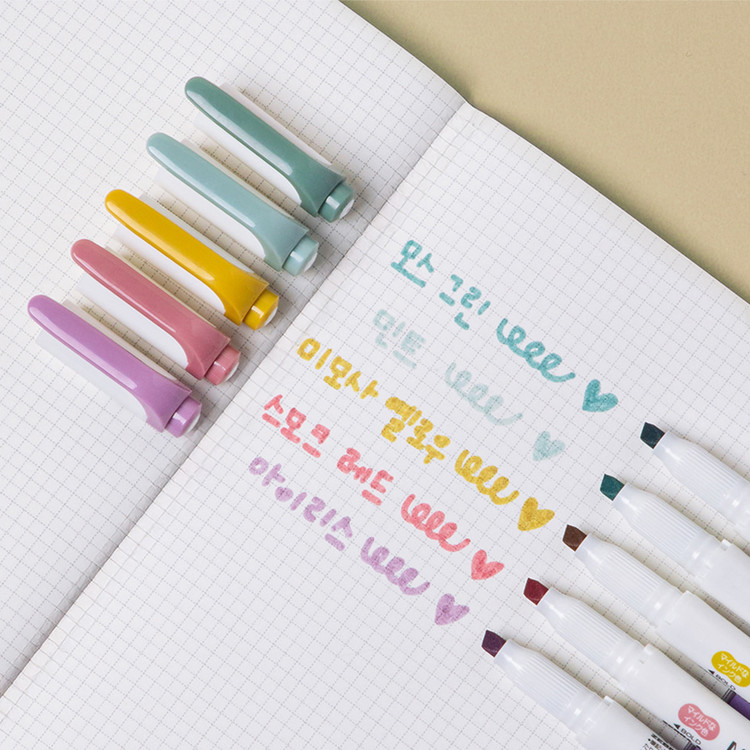 모스 그린
민트
미모사 옐로우
스모크 레드
아이리스
マイルドな
インク色
BOLD
マイルドな
インク色
BOLD